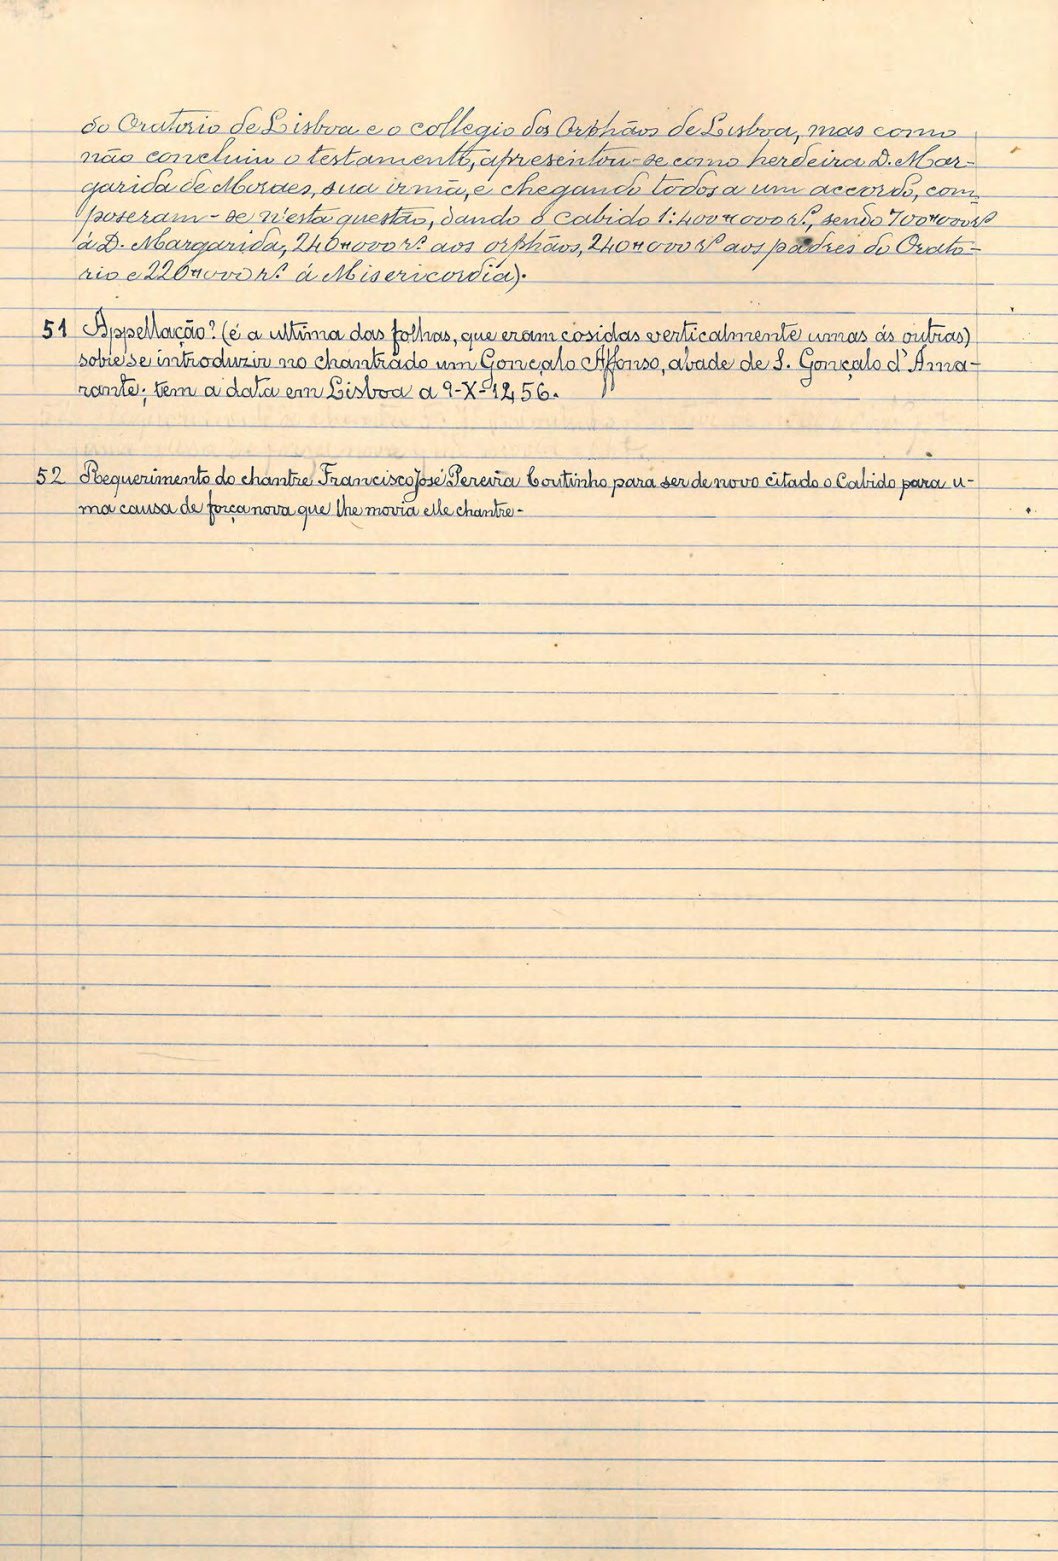 do Oratorio de Lisboa e o collegio dos Orphãos de Lisboa, mas como
não concluiu o testamento, apresentou-se como herdeira D. Mar-
garida de Moraes, sua irmã, e chegando todos a um accordo, com-
poseram-se n'esta questão, dando o cabido 1:400#000 rs., sendo 700#000 rs
á D. Margarida, 240#000 rs. aos orphãos, 240#000 rs aos padres do Orato-
rio e 220#000 rs. á Misericordia).
51 Appellação? (é a ultima das folhas, que eram cosidas verticalmente umas ás outras)
sobre se introduzir no chantrado um Gonçalo Affonso, abade de S. Gonçalo d'Ama-
rante; tem a data em Lisboa a 9-X-1456.
52 Requerimento do chantre Francisco José Pereira Coutinho para ser de novo citado o Cabido para u-
ma causa de força nova que lhe movia elle chantre-